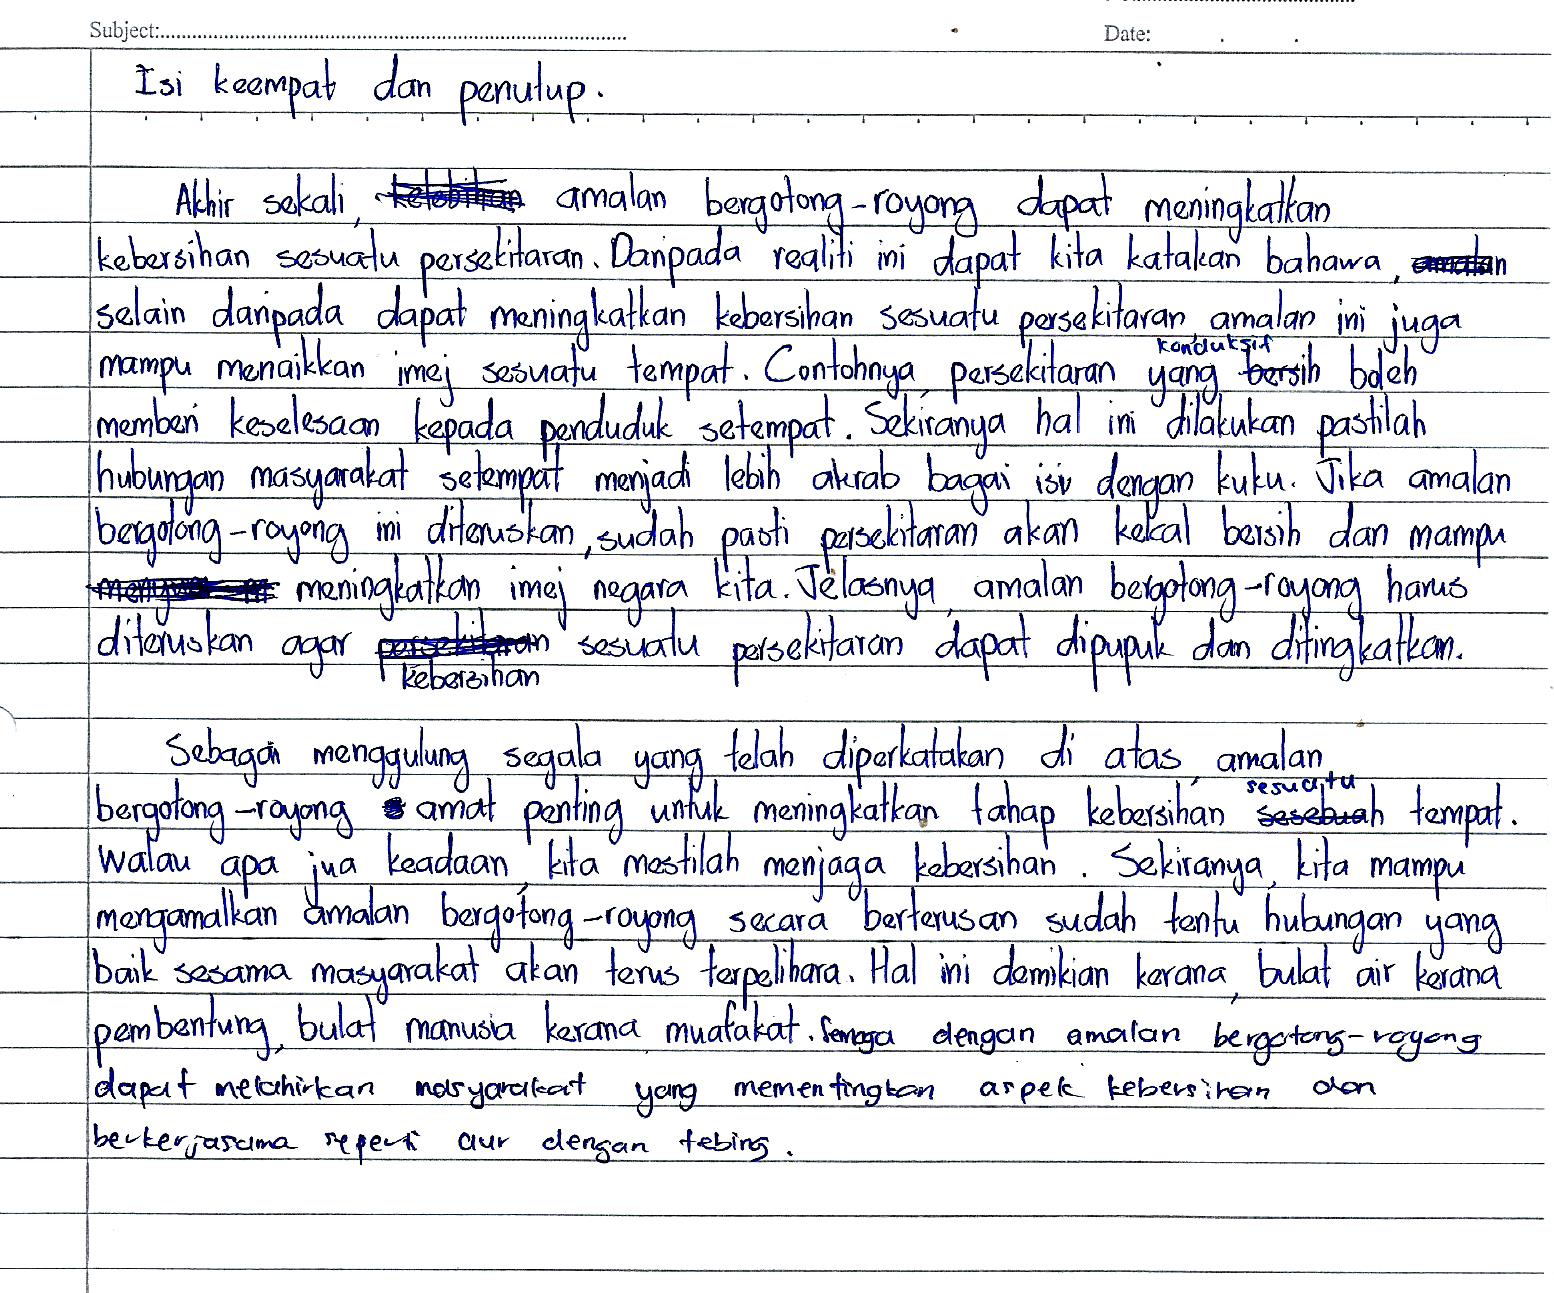 Subject:
Date:
Isi keempat dan penutup.
Akhir sekali, amalan bergotong-royong dapat meningkatkan
kebersihan sesuatu persekitaran. Daripada realiti ini dapat kita katakan bahawa, amalan
selain daripada dapat meningkatkan kebersihan sesuatu persekitaran, amalan ini juga
konduksif
mampu menaikkan imej sesuatu tempat. Contohnya, persekitaran yang bersih boleh
memberi keselesaan kepada penduduk setempat. Sekiranya hal ini dilakukan pastilah
hubungan masyarakat setempat menjadi lebih akrab bagai isi dengan kuku. Jika amalan
bergotong-royong ini diteruskan, sudah pasti persekitaran akan kekal bersih dan mampu
meningkatkan imej negara kita. Jelasnya, amalan bergotong-royong harus
diteruskan agar persekitaran sesuatu persekitaran dapat dipupuk dan ditingkatkan.
kebersihan
Sebagai menggulung segala yang telah diperkatakan di atas, amalan
sesuatu
bergotong-royong amat penting untuk meningkatkan tahap kebersihan sesebuah tempat.
Walau apa jua keadaan, kita mestilah menjaga kebersihan. Sekiranya, kita mampu
mengamalkan amalan bergotong-royong secara berterusan sudah tentu hubungan yang
baik sesama masyarakat akan terus terpelihara. Hal ini demikian kerana, bulat air kerana
pembentung, bulat manusia kerana muafakat. Semoga dengan amalan bergotong-royong
dapat melahirkan masyarakat yang mementingkan aspek kebersihan dan
berkerjasama seperti aur dengan tebing.